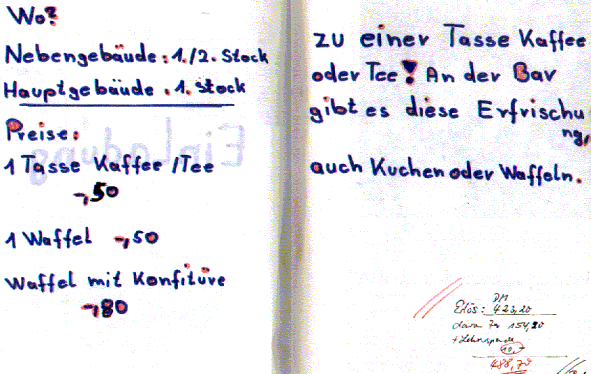 Wo?
Nebengebäude: 1./2. Stock
Hauptgebäude: 1. Stock
Preise:
1 Tasse Kaffee/Tee
-,50
1 Waffel -,50
Waffel mit Konfitüre
-,80
Einladung
zu einer Tasse Kaffee
oder Tee! An der Bar
gibt es diese Erfrischu
ng,
auch Kuchen oder Waffeln.
DM
Erlös: 423,20